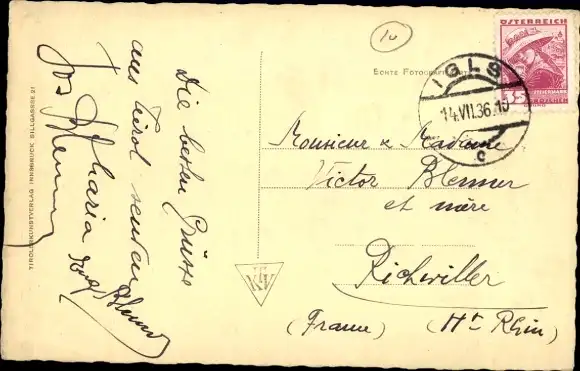 Die besten Grüsse
aus Tirol senden
Jos Maria
Blenner
10
ECHTE FOTOGRAFIE
ÖSTERREICH
35
GROSCHEN
IGLS
14.VII.36.10
c
Monsieur & Madame
Victor Blenner
et mère
Richwiller
(France) (Ht Rhin)
TIROLER KUNSTVERLAG INNSBRUCK SILLGASSE 21